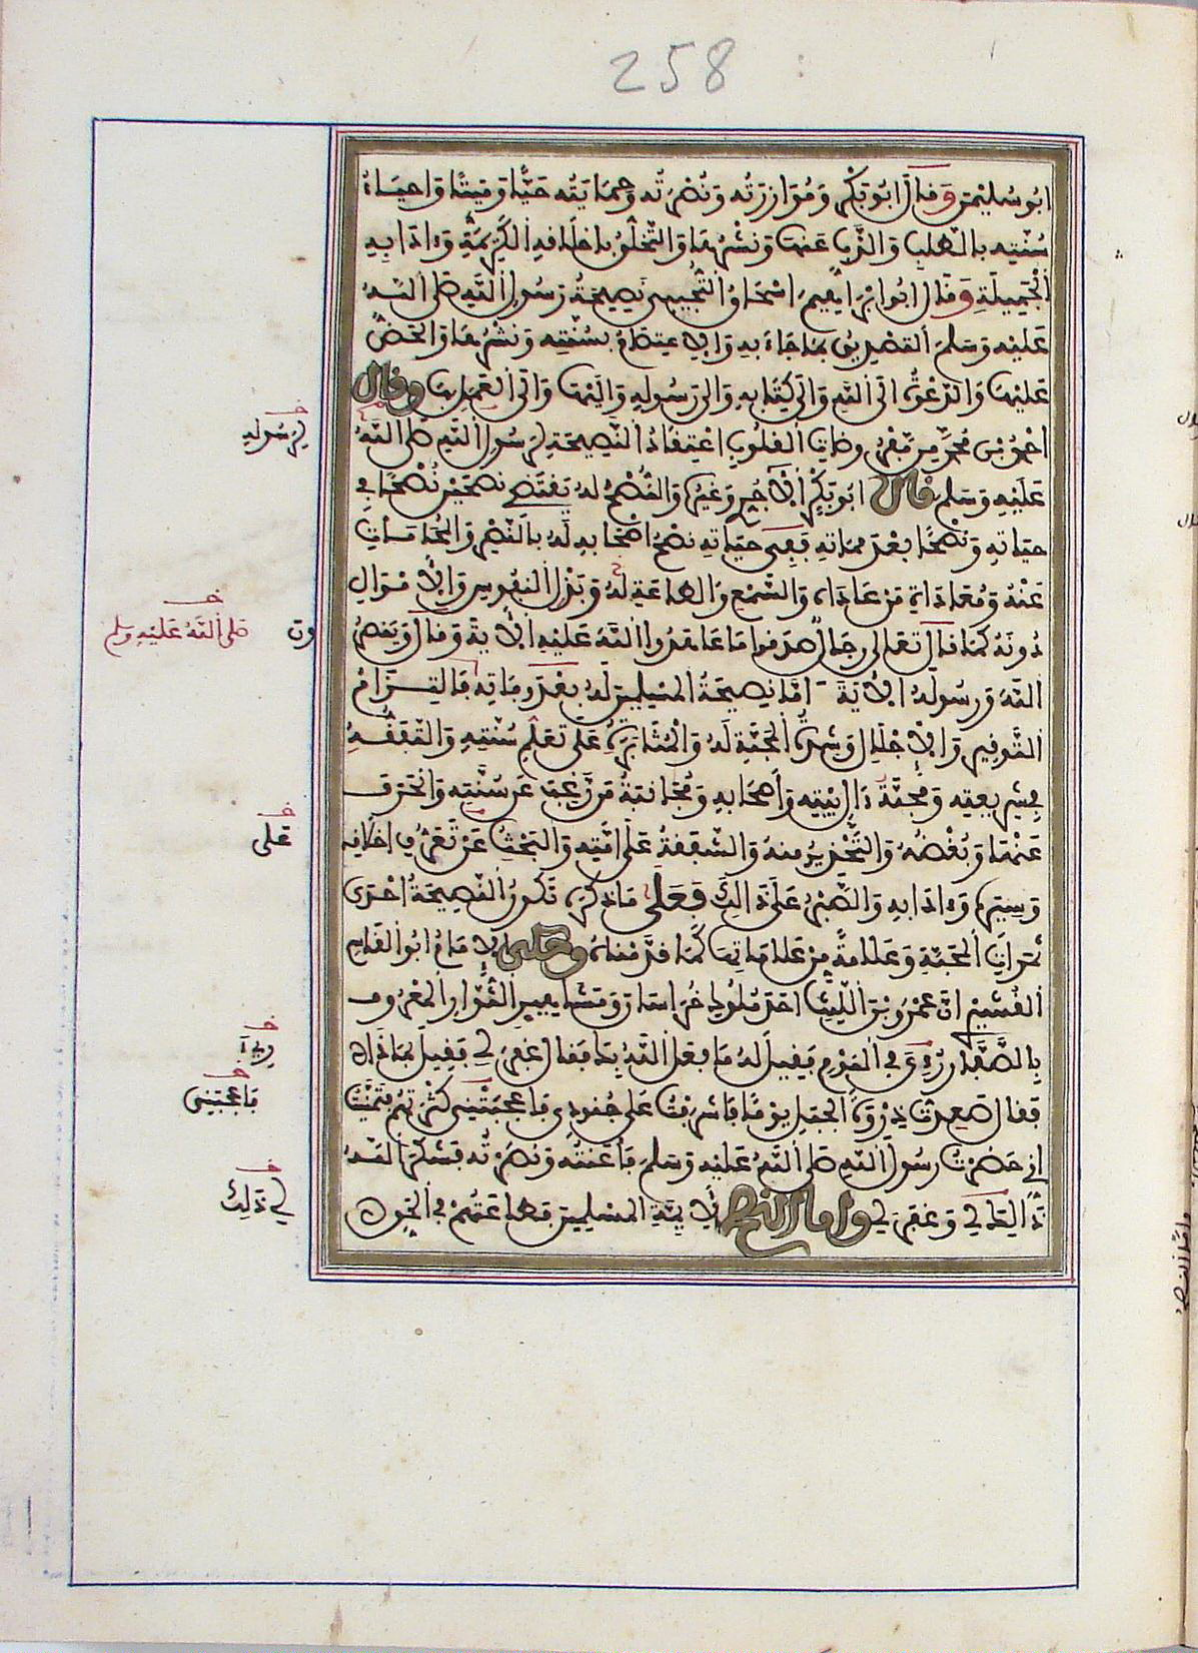 258
ابو سليمن وقال ابو بكر ومؤازرته ونصرته وحمايته حيا وميتا واحياء
سنته بالطلب والذب عنها ونشرها والتخلق باخلاقه الكريمة وءادابه
الجميلة وقال ابو ابراهيم اسحاق التجيبي نصيحة رسول الله صلى الله
عليه وسلم التصديق بما جاء به والاعتصام بسنته ونشرها والحض
عليها والدعوة الى الله والى كتابه والى رسوله واليها والى العمل بها وقال
احمد بن محمد من مفروضات القلوب اعتقاد النصيحة لرسول الله صلى الله
عليه وسلم قال ابو بكر الاجري وغيره والنصح له يقتضي نصحين نصحا في
حياته ونصحا بعد مماته ففي حياته نصح اصحابه له بالنصر والمحامات
عنه ومعاداة من عاداه والسمع والطاعة له وبذل النفوس والاموال
دونه كما قال تعالى رجال صدقوا ما عاهدوا الله عليه الاية وقال وينصرون
الله ورسوله الاية اما نصيحة المسلمين له بعد وفاته فالتزام
التوقير والاجلال وشدة المحبة له والمثابرة على تعلم سنته والتفقه
في شريعته ومحبة ءال بيته واصحابه ومجانبة من رغب عن سنته وانحرف
عنها وبغضه والتحذير منه والشفقة على امته والبحث عن تعرف اخلاقه
وسيره وءادابه والصبر على ذالك فعلى ما ذكره تكون النصيحة احدى
ثمرات المحبة وعلامة من علاماتها كما قدمناه وحكى الامام ابو القاسم
القشيري ان عمرو بن الليث احد ملوك خراسان ومشاهير الثوار المعروف
بالصفار رءي في النوم فقيل له ما فعل الله بك فقال غفر لي فقيل بماذا
فقال صعدت ذروة الجبل يوما فاشرفت على جنودي فاعجبتني كثرتهم فتمنيت
اني حضرت رسول الله صلى الله عليه وسلم فاعنته ونصرته فشكر الله
ذالك لي وغفر لي واما النصح لائمة المسلمين فطاعتهم في الحق
لرسوله
صلى الله عليه وسلم
ون
على
رىء
فاعجبتنى
لي ذلك